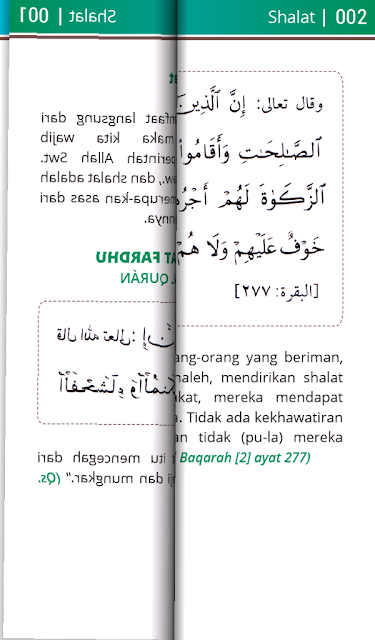 001 | Shalat
langsung dari
maka kita wajib
perintah Allah Swt.
dan shalat adalah
merupa-kan asas dari
FARDHU
QURÁN
قال الله تعالى: إِنَّ
ٱلْفَحْشَآءِ وَٱلْمُنكَرِ
itu mencegah dari
dan mungkar.” (Qs.
Shalat | 002
وقال تعالى: إِنَّ ٱلَّذِينَ
ٱلصَّٰلِحَٰتِ وَأَقَامُوا۟
ٱلزَّكَوٰةَ لَهُمْ أَجْرُهُ
خَوْفٌ عَلَيْهِمْ وَلَا هُمْ
[البقرة: ٢٧٧]
ang-orang yang beriman,
aleh, mendirikan shalat
kat, mereka mendapat
Tidak ada kekhawatiran
an tidak (pu-la) mereka
Baqarah [2] ayat 277)